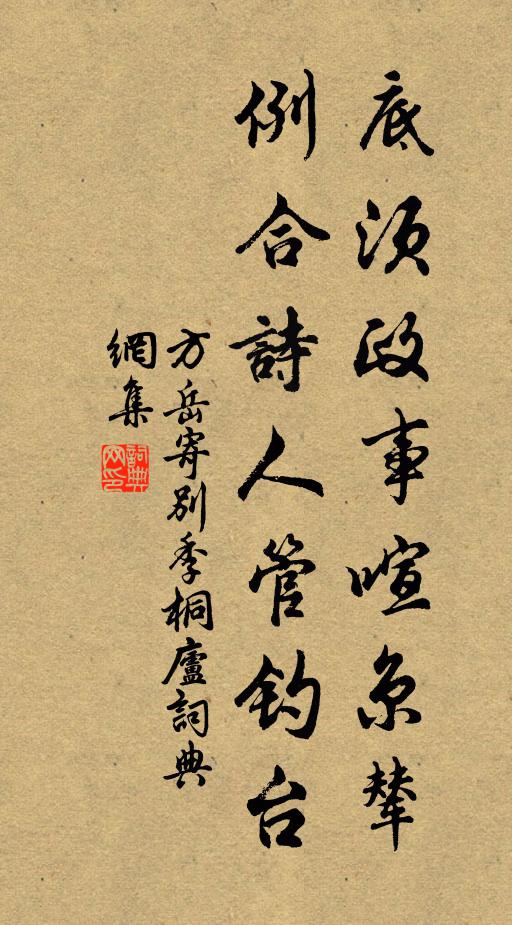 底須政事喧京輦
例合詩人管釣台
方岳寄别季桐廬詞典
網集
詞典網印